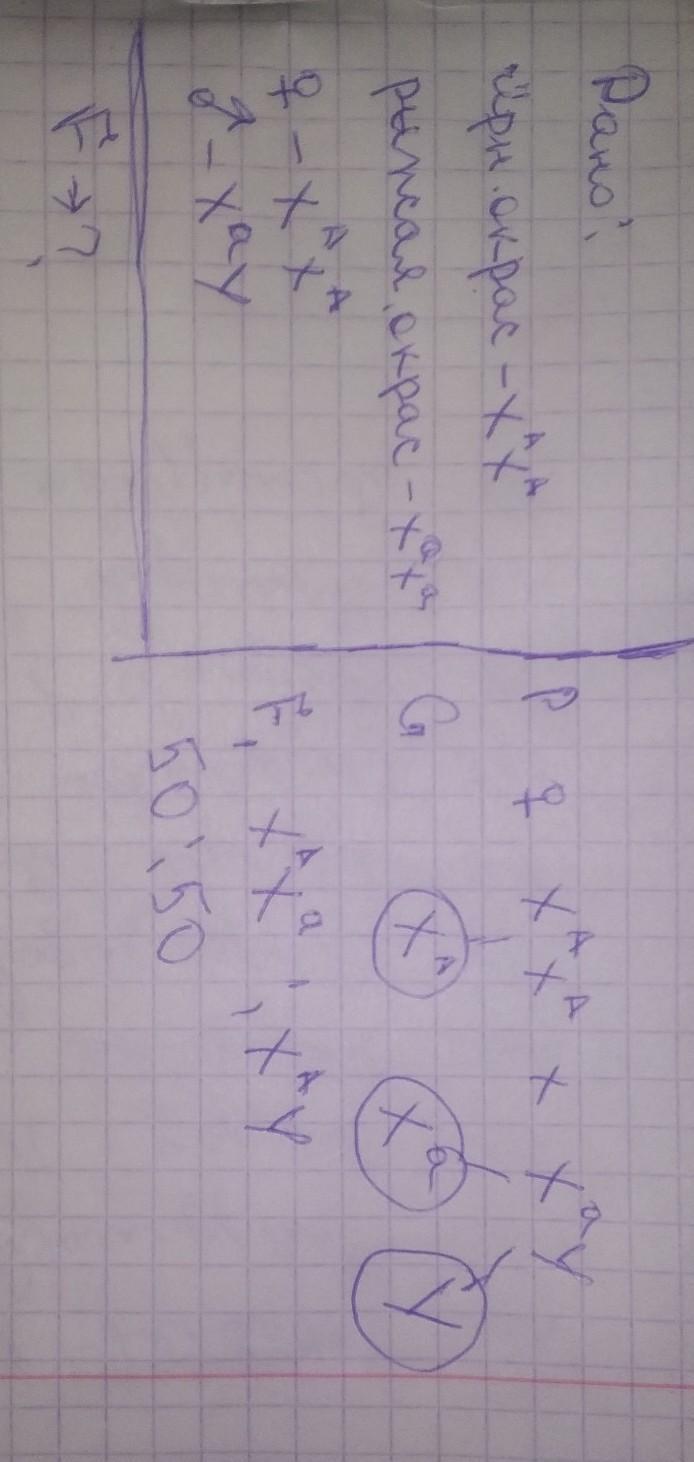 Дано:
чёрн. окрас - X^A X^A
рыжая окрас - X^a X^a
♀ - X^A X^A
♂ - X^a Y
F₁ → ?
P ♀ X^A X^A × X^a Y
G X^A X^a Y
F₁ X^A X^a ; X^A Y
50 : 50